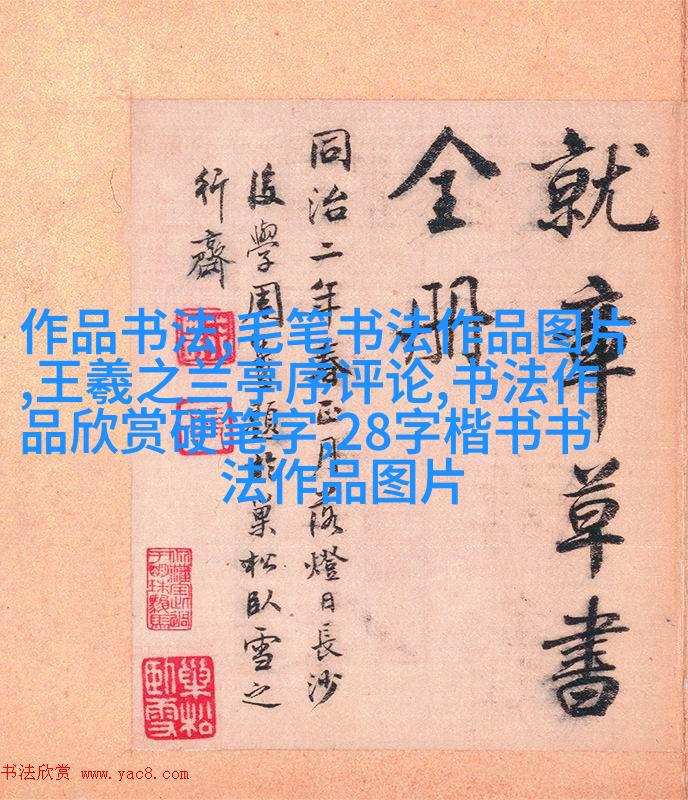 就章草書
全冊
同治二年春正月落燈日長沙
後學周題於巢松臥雪之
行齋
巢松
臥雪
作品书法,毛笔书法作品图片
,王羲之兰亭序评论,书法作
品欣赏硬笔字,28字楷书书
法作品图片
书法欣赏 www.yac8.com